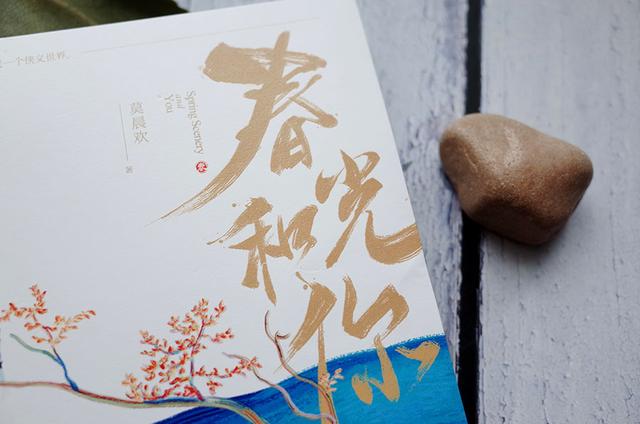 一个侠义世界。
春光和你
Spring Scenery
and
You
莫晨欢
著